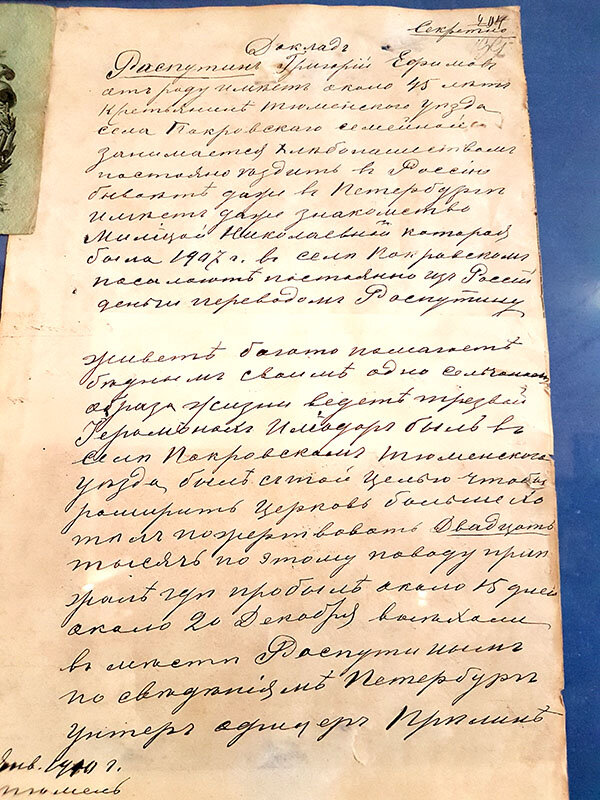 404
Секретно
Докладъ
Распутинъ Григорій Ефимовъ
отъ роду имѣетъ около 45 лѣтъ
Крестьянинъ Тюменского уѣзда
села Покровского семейной
занимается хлѣбопашествомъ
постоянно ѣздитъ въ Россію
бываетъ даже въ Петербургѣ
имѣетъ даже знакомство
Милицой Николаевной которая
была 1907 г. въ селѣ Покровскомъ
посылаютъ постоянно изъ Россіи
деньги переводомъ Распутину
живетъ богато помогаетъ
бѣднымъ своимъ одно сельчанамъ
образъ жизни ведетъ трезвой
Іеромонахъ Илиодоръ былъ въ
селѣ Покровскомъ Тюменского
уѣзда былъ с той целью чтобы
розширить церковь больше хо
телъ пожертвовать Двадцать
тысячъ по этому поводу приѣ
жалъ гдѣ пробылъ около 15 дней
около 20 Декабря выехали
въ мѣсти Распутинымъ
по свѣденіямъ Петербургъ
унтеръ офицеръ Прилинъ
Янв. 1910 г.
Тюмень